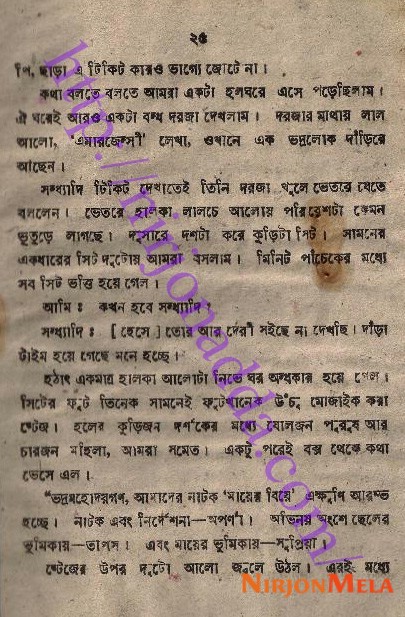 ২৫
পি, ছাড়া এ টিকিট কারও ভাগ্যে জোটে না।
কথা বলতে বলতে আমরা একটা হলঘরে এসে পড়েছিলাম।
ঐ ঘরেই আরও একটা বন্ধ দরজা দেখলাম। দরজার মাথায় লাল
আলো, ‘এমারজেন্সী’ লেখা, ওখানে এক ভদ্রলোক দাঁড়িয়ে
আছেন।
সন্ধ্যাদি টিকিট দেখাতেই তিনি দরজা খুলে ভেতরে যেতে
বললেন। ভেতরে হালকা লালচে আলোয় পরিবেশটা কেমন
ভুতুড়ে লাগছে। দুসারে দশটা করে কুড়িটা সিট। সামনের
একধারের সিট দুটোয় আমরা বসলাম। মিনিট পাঁচেকের মধ্যে
সব সিট ভর্ত্তি হয়ে গেল।
আমি : কখন হবে সন্ধ্যাদি :
সন্ধ্যাদি : [ হেসে ] তোর আর দেরী সইছে না দেখছি। দাঁড়া
টাইম হয়ে গেছে মনে হচ্ছে।
হঠাৎ একমাত্র হালকা আলোটা নিভে ঘর অন্ধকার হয়ে গেল।
সিটের ফুট তিনেক সামনেই ফুটখানেক উঁচু মোজাইক করা
ষ্টেজ। হলের কুড়িজন দর্শকের মধ্যে ষোলজন পুরুষ আর
চারজন মহিলা, আমরা সমেত। একটু পরেই বক্স থেকে কথা
ভেসে এল।
“ভদ্রমহোদয়গণ, আমাদের নাটক ‘মায়ের বিয়ে’ এক্ষুণি আরম্ভ
হচ্ছে। নাটক এবং নির্দেশনা—অপর্ণা। অভিনয় অংশে ছেলের
ভূমিকায়—তাপস। এবং মায়ের ভূমিকায়—সুপ্রিয়া।
ষ্টেজের উপর দুটো আলো জ্বলে উঠল। এরই মধ্যে
NIRJONMELA